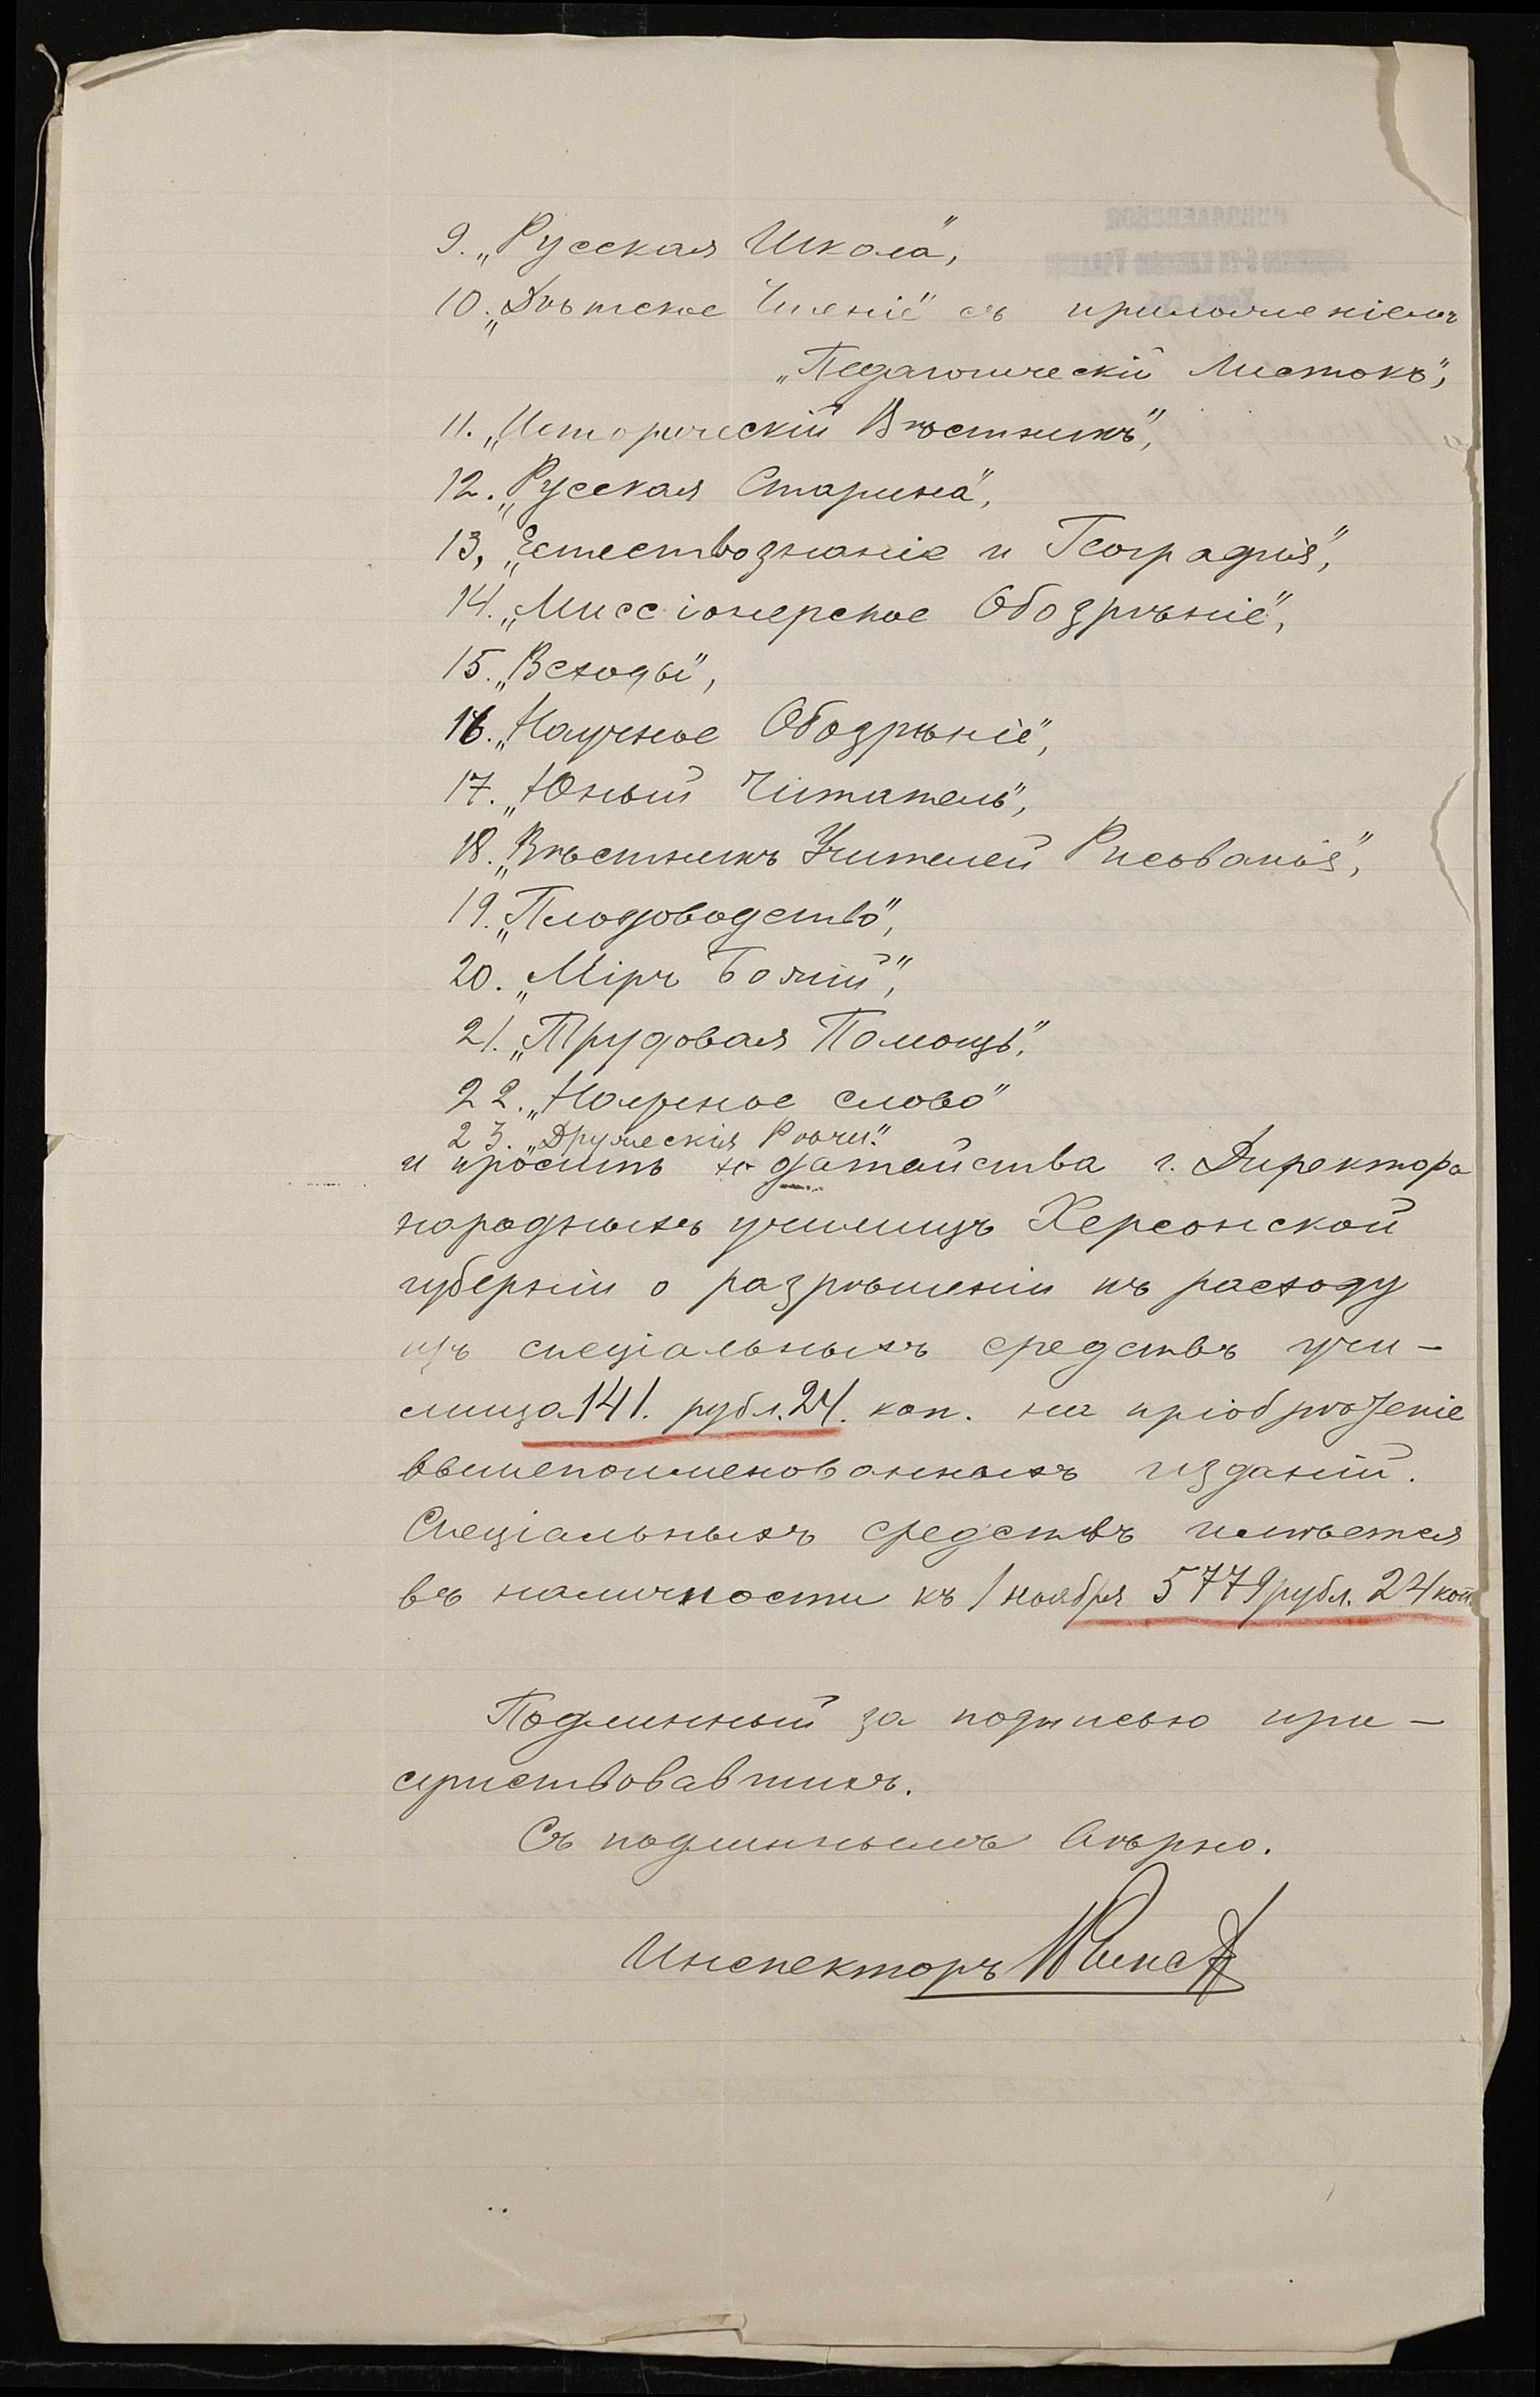 9. „Русская Школа",
10. „Дѣтское Чтеніе" съ приложеніемъ
„Педагогическій Листокъ",
11. „Историческій Вѣстникъ",
12. „Русская Старина",
13, „Естествознаніе и Географія",
14. „Миссіонерское Обозрѣніе",
15. „Всходы",
16. „Научное Обозрѣніе",
17. „Юный Читатель",
18. „Вѣстникъ Учителей Рисованія",
19. „Плодоводство",
20. „Міръ Божій",
21. „Трудовая Помощь",
22. „Научное слово"
23. „Дружескія Рѣчи."
и просить ходатайства г. Директора
народныхъ училищъ Херсонской
губерніи о разрѣшеніи къ расходу
изъ спеціальныхъ средствъ учи-
лища 141. рубл. 24. коп. на пріобрѣтеніе
вышепоименованныхъ изданій.
Спеціальныхъ средствъ имѣется
въ наличности къ 1 ноября 5779 рубл. 24 коп.
Подлинный за подписью при-
сутствовавшихъ.
Съ подлиннымъ вѣрно.
Инспекторъ